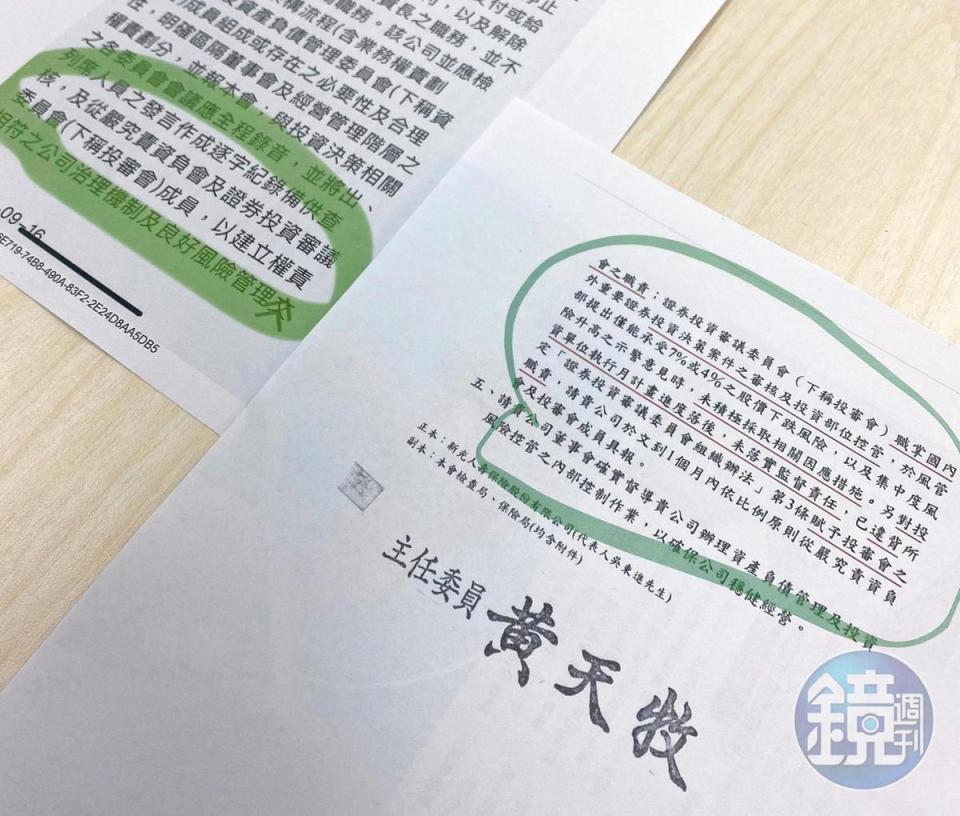 付或給
利，以及解除
長之職務，並不
職務。該公司並應檢
構流程(含業務權責劃
資產負債管理委員會(下稱資
成員組成或存在之必要性及合理
權責劃分，並報本會，與投資決策相關
任，明確區隔董事會及經營管理階層之
之各委員會會議應全程錄音，並將出、
列席人員之發言作成逐字紀錄備供查
核，及從嚴究責資負會及證券投資審議
委員會(下稱投審會)成員，以建立權責
相符之公司治理機制及良好風險管理文
-09-16
6E719-74B8-490A-83F2-2E24D8AA5DB5
會之職責：證券投資審議委員會（下稱投審會）職掌國內
外重要證券投資決策案件之審核及投資部位控管，於風管
部提出僅能承受7%或4%之股價下跌風險，以及集中度風
險升高之示警意見時，未積極採取相關因應措施。另對投
資單位執行月計畫進度落後，未落實監督責任，已違貴所
定「證券投資審議委員會組織辦法」第3條賦予投審會之
職責，請貴公司於文到1個月內依比例原則從嚴究責資負
會及投審會成員具報。
五、請貴公司董事會確實督導貴公司辦理資產負債管理及投資
風險控管之內部控制作業，以確保公司穩健經營。
正本：新光人壽保險股份有限公司(代表人吳東進先生)
副本：本會檢查局、保險局(均含附件)
主任委員 黃天牧
鏡週刊